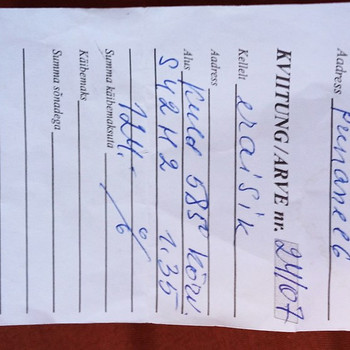 Aadress Punane 6
KVIITUNG/ARVE nr. 24107
Kellelt eraisik
Aadress
Alus Kuld 585°
1.35
124.-
Summa käibemaksuta
Käibemaks
Summa sõnadega